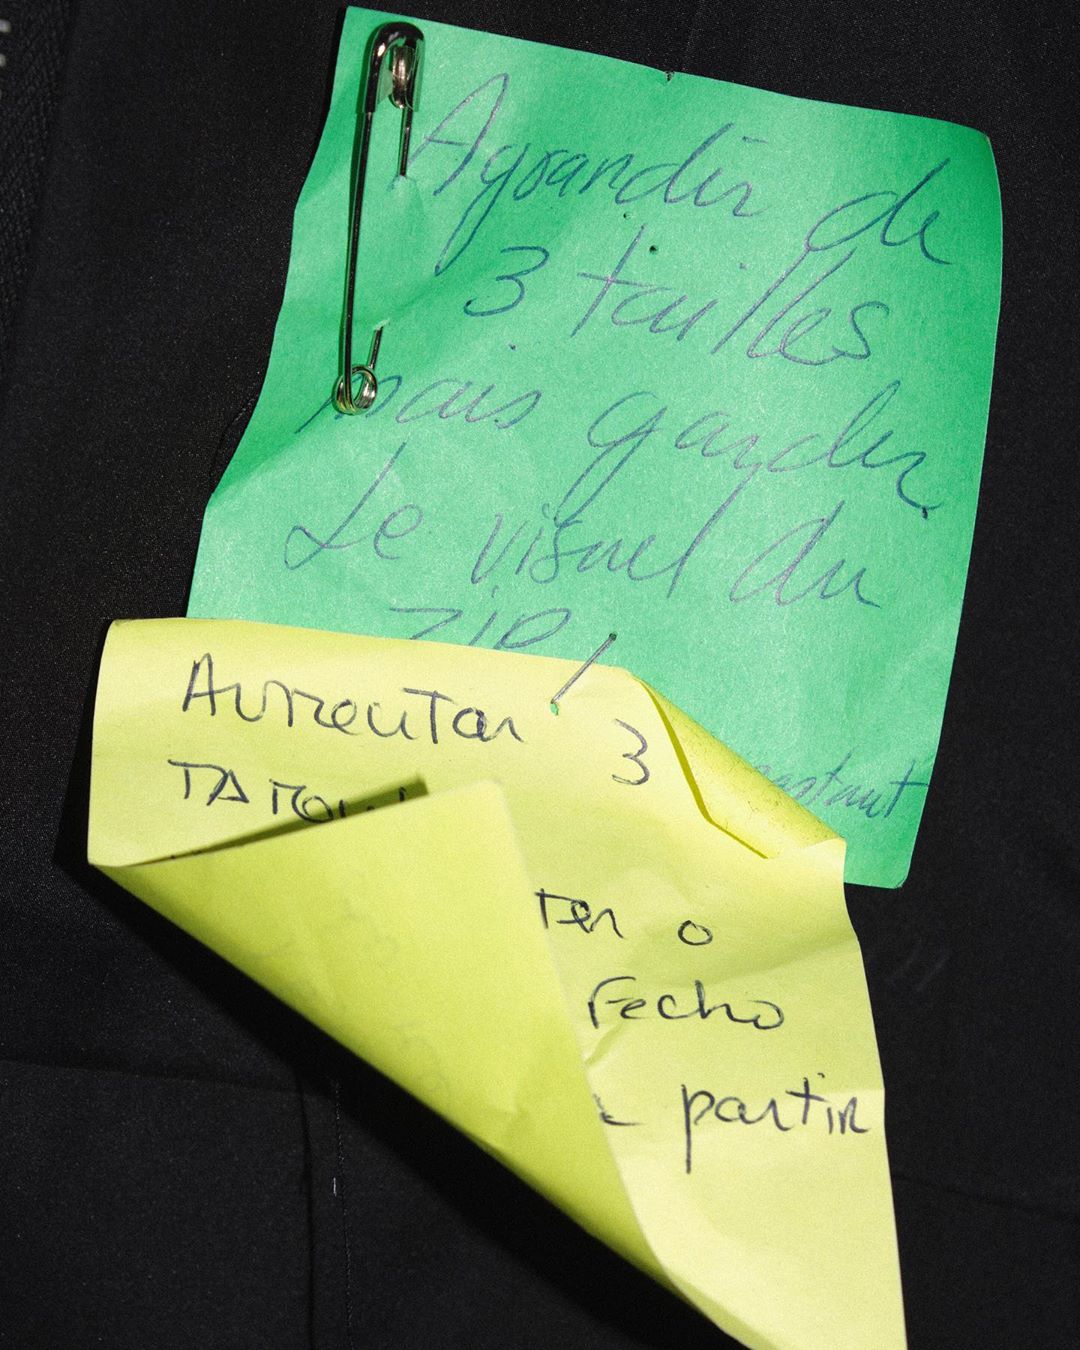 Agrandir de
3 tailles
mais garder
Le visuel du
ZIP!
Aumentar 3
ter o
Fecho
partir